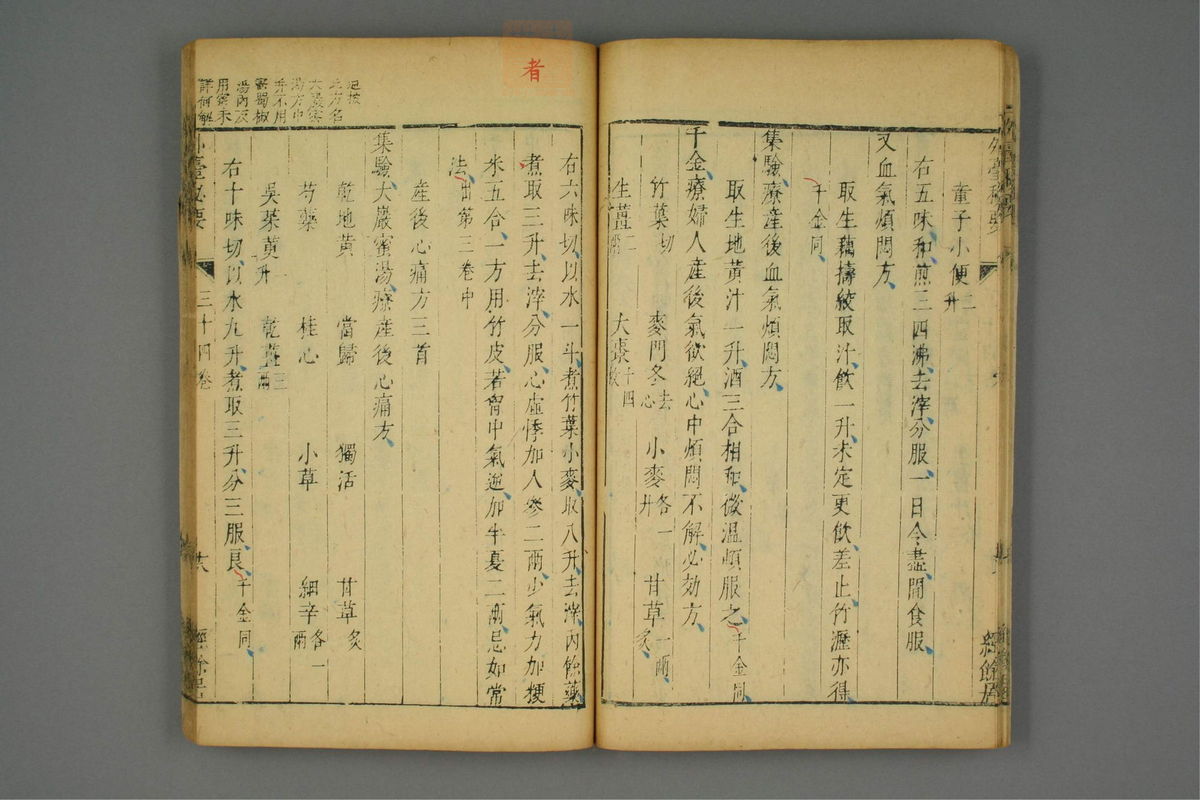 外臺秘要
經餘居
童子小便二升
右五味和煎三四沸去滓分服一日令盡閒食服
又血氣煩悶方
取生藕擣絞取汁飲一升未定更飲差止竹瀝亦得
千金同
集驗療產後血氣煩悶方
取生地黃汁一升酒三合相和微溫頓服之千金同
千金療婦人產後氣欲絕心中煩悶不解必効方
竹葉切 麥門冬去心 小麥各一升 甘草一兩炙
生薑二兩 大棗十四枚
者
右六味切以水一斗煮竹葉小麥取八升去滓內餘藥
煮取三升去滓分服心虛悸加人參二兩少氣力加稉
米五合一方用竹皮若胷中氣逆加半夏二兩忌如常
法出第三卷中
產後心痛方三首
集驗大巖蜜湯療產後心痛方
乾地黃 當歸 獨活 甘草炙
芍藥 桂心 小草 細辛各一兩
吳茱萸一升 乾薑三兩
右十味切以水九升煮取三升分三服良千金同
之方名
大巖蜜
湯方中
並不用
蜜蜀椒
湯內反
用蜜未
詳何解
外臺秘要
三十四卷
十六
經餘居